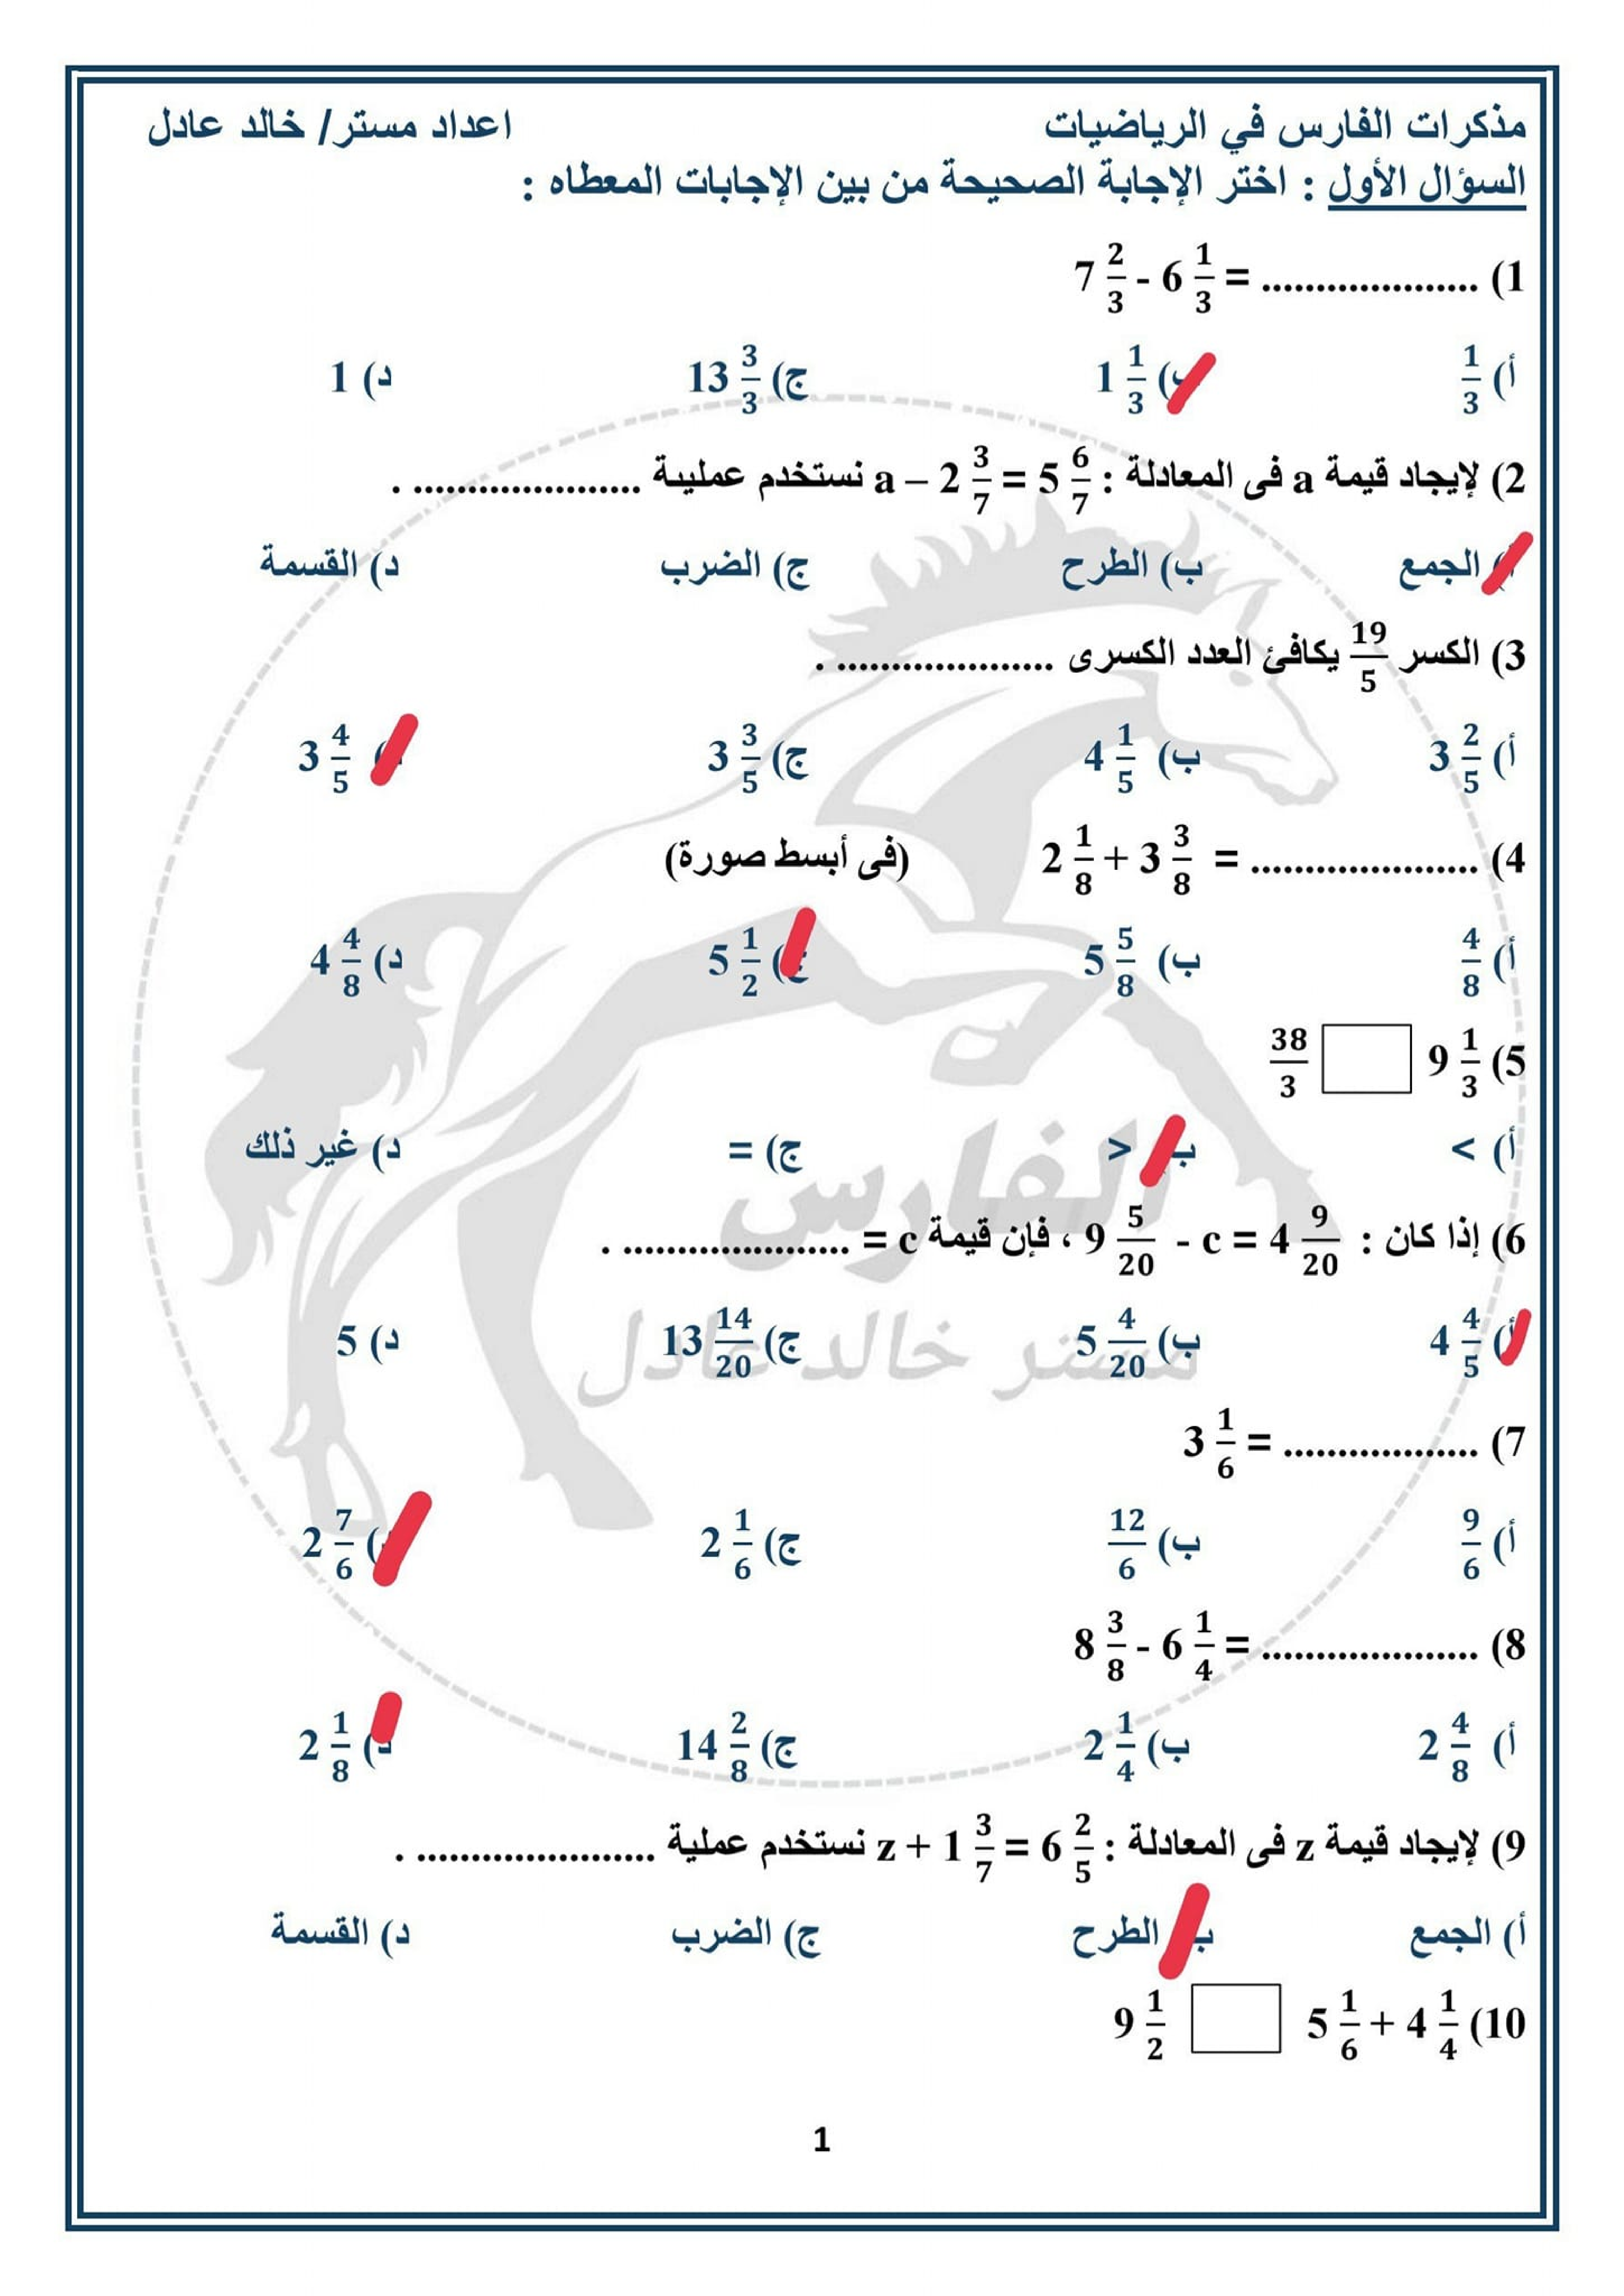 مذكرات الفارس في الرياضيات اعداد مستر/ خالد عادل
السؤال الأول : اختر الإجابة الصحيحة من بين الإجابات المعطاه :
1) 7 2/3 - 6 1/3 = ....................
أ) 1/3 ب) 1 1/3 ج) 13 3/3 د) 1
2) لإيجاد قيمة a فى المعادلة : a – 2 3/7 = 5 6/7 نستخدم عمليبة ..................... .
أ) الجمع ب) الطرح ج) الضرب د) القسمة
3) الكسر 19/5 يكافئ العدد الكسرى .................... .
أ) 3 2/5 ب) 4 1/5 ج) 3 3/5 د) 3 4/5
4) 2 1/8 + 3 3/8 = ..................... (فى أبسط صورة)
أ) 4/8 ب) 5 5/8 ج) 5 1/2 د) 4 4/8
5) 9 1/3 38/3
أ) > ب) < ج) = د) غير ذلك
6) إذا كان : 9 5/20 - c = 4 9/20 ، فإن قيمة c = ..................... .
أ) 4 4/5 ب) 5 4/20 ج) 13 14/20 د) 5
7) 3 1/6 = ..................
أ) 9/6 ب) 12/6 ج) 2 1/6 د) 2 7/6
8) 8 3/8 - 6 1/4 = ....................
أ) 2 4/8 ب) 2 1/4 ج) 14 2/8 د) 2 1/8
9) لإيجاد قيمة z فى المعادلة : z + 1 3/7 = 6 2/5 نستخدم عملية ...................... .
أ) الجمع ب) الطرح ج) الضرب د) القسمة
10) 5 1/6 + 4 1/4 9 1/2
الفارس
مستر خالد عادل
1